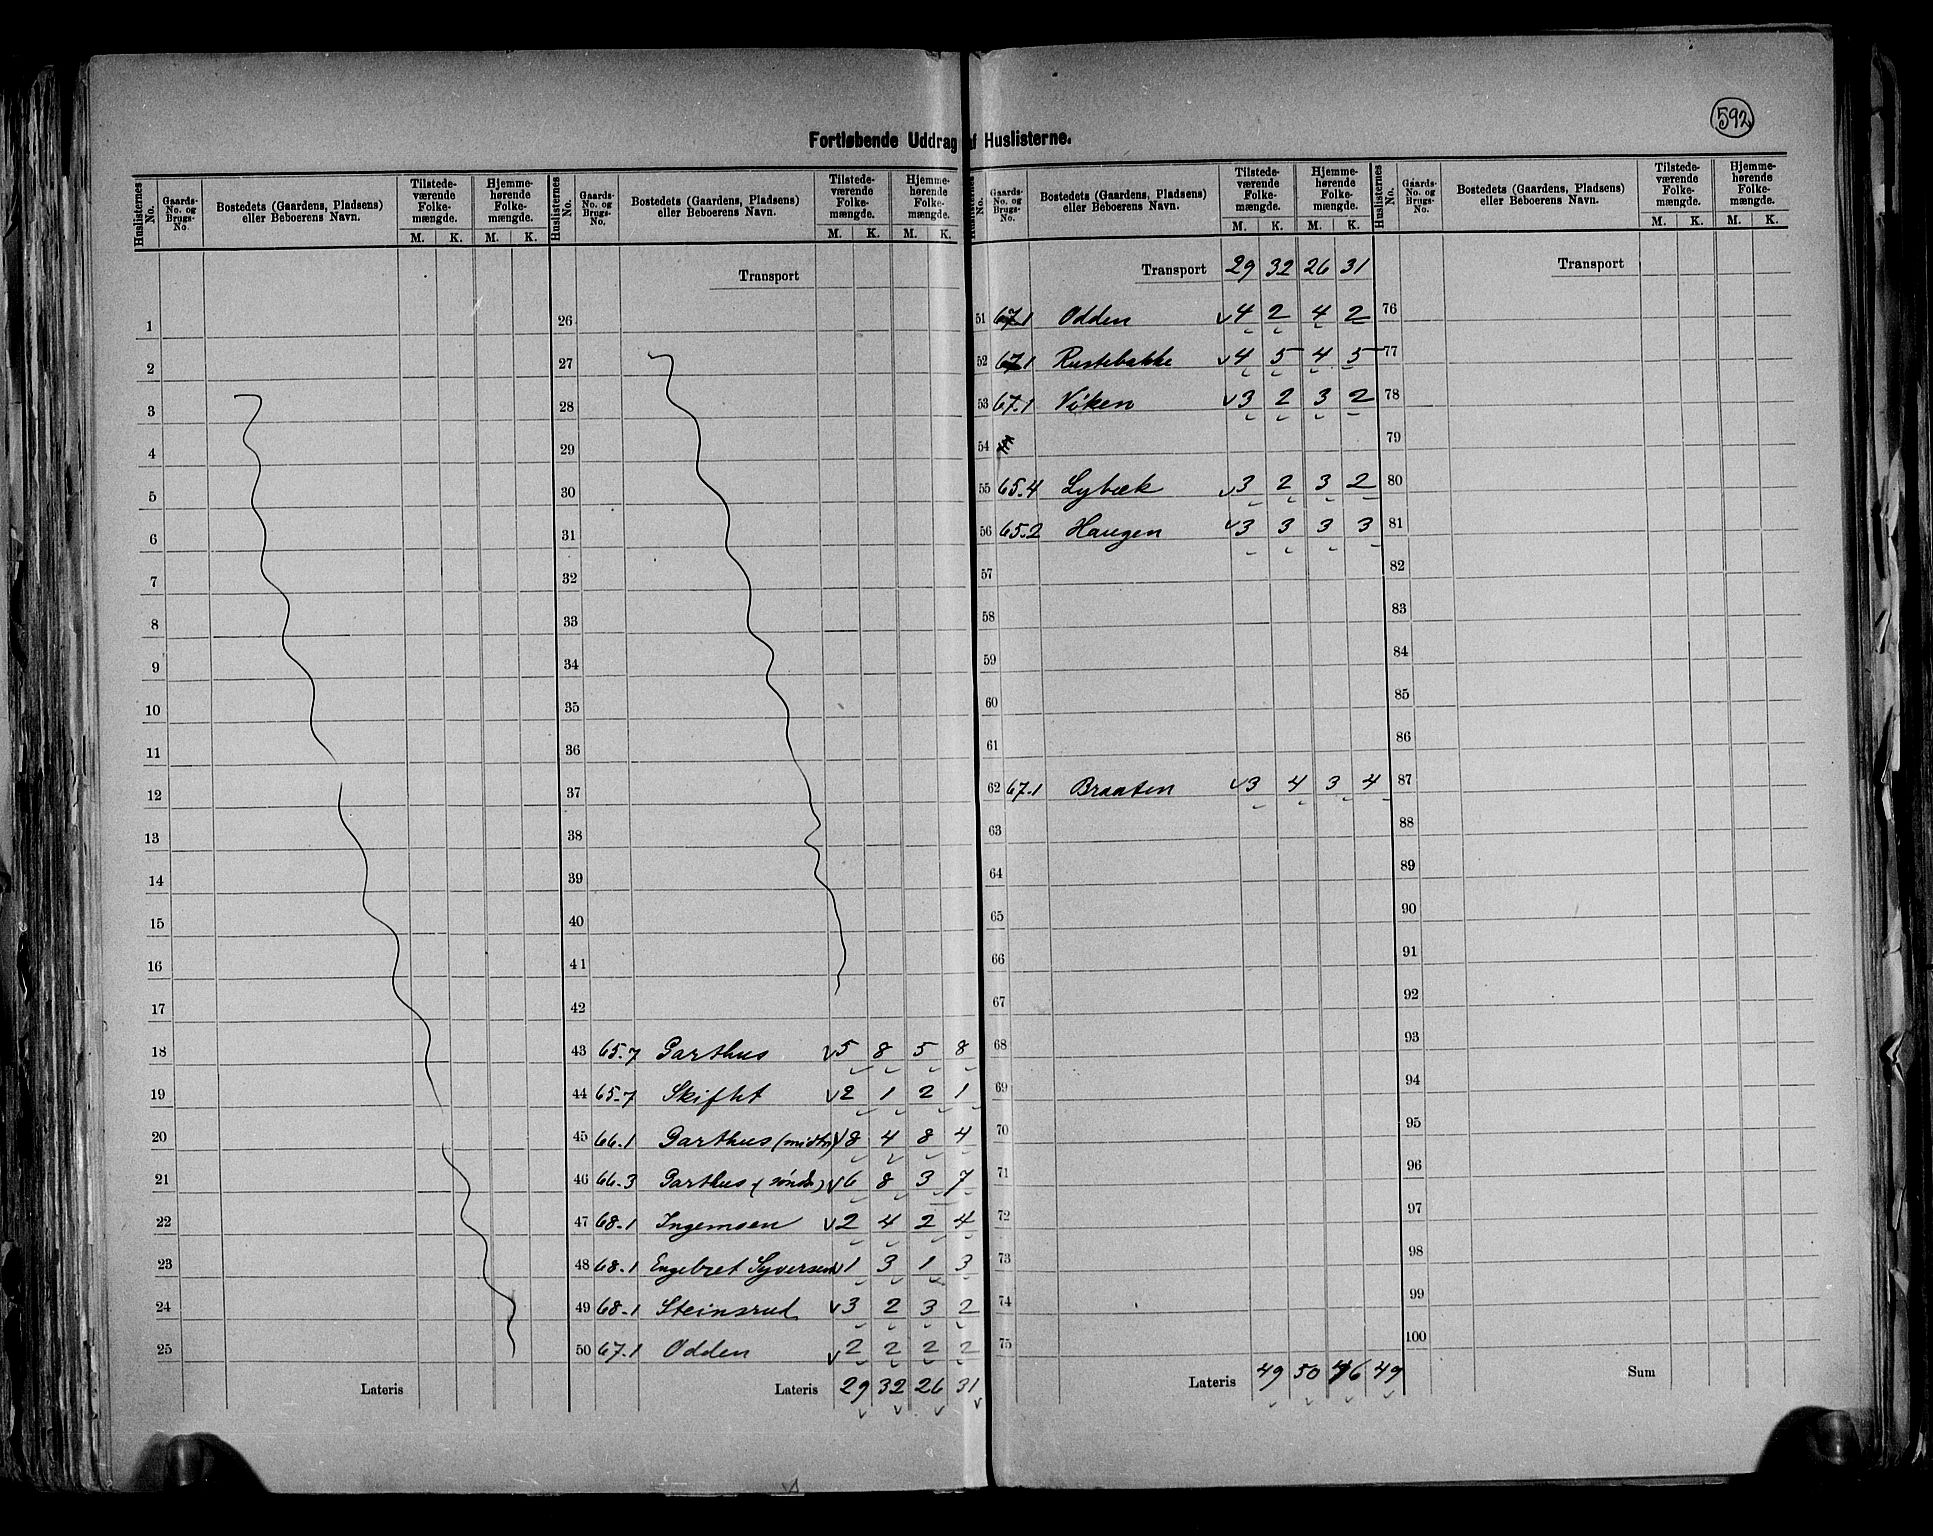 592
Fortløbende Uddrag af Huslisterne.
Huslisternes No. Gaards-No. og Brugs-No. Bostedets (Gaardens, Pladsens) eller Beboerens Navn. Tilstede-værende Folke-mængde. M. K. Hjemme-hørende Folke-mængde. M. K.
Huslisternes No. Gaards-No. og Brugs-No. Bostedets (Gaardens, Pladsens) eller Beboerens Navn. Tilstede-værende Folke-mængde. M. K. Hjemme-hørende Folke-mængde. M. K.
Huslisternes No. Gaards-No. og Brugs-No. Bostedets (Gaardens, Pladsens) eller Beboerens Navn. Tilstede-værende Folke-mængde. M. K. Hjemme-hørende Folke-mængde. M. K.
Huslisternes No. Gaards-No. og Brugs-No. Bostedets (Gaardens, Pladsens) eller Beboerens Navn. Tilstede-værende Folke-mængde. M. K. Hjemme-hørende Folke-mængde. M. K.
1
2
3
4
5
6
7
8
9
10
11
12
13
14
15
16
17
18
19
20
21
22
23
24
25
Lateris
Transport
26
27
28
29
30
31
32
33
34
35
36
37
38
39
40
41
42
43 65.7 Garthus 5 8 5 8
44 65.7 Skifht 2 1 2 1
45 66.1 Garthus (midtr) 8 4 8 4
46 66.3 Garthus (søndr) 6 8 3 7
47 68.1 Ingemoen 2 4 2 4
48 68.1 Engebret Syversen 1 3 1 3
49 68.1 Steinsrud 3 2 3 2
50 67.1 Odden 2 2 2 2
Lateris 29 32 26 31
Transport 29 32 26 31
51 67.1 Odden 4 2 4 2
52 67.1 Rustebakke 4 5 4 5
53 67.1 Viken 3 2 3 2
54
55 65.4 Lybæk 3 2 3 2
56 65.2 Haugen 3 3 3 3
57
58
59
60
61
62 67.1 Braaten 3 4 3 4
63
64
65
66
67
68
69
70
71
72
73
74
75
Lateris 49 50 46 49
Transport
76
77
78
79
80
81
82
83
84
85
86
87
88
89
90
91
92
93
94
95
96
97
98
99
100
Sum